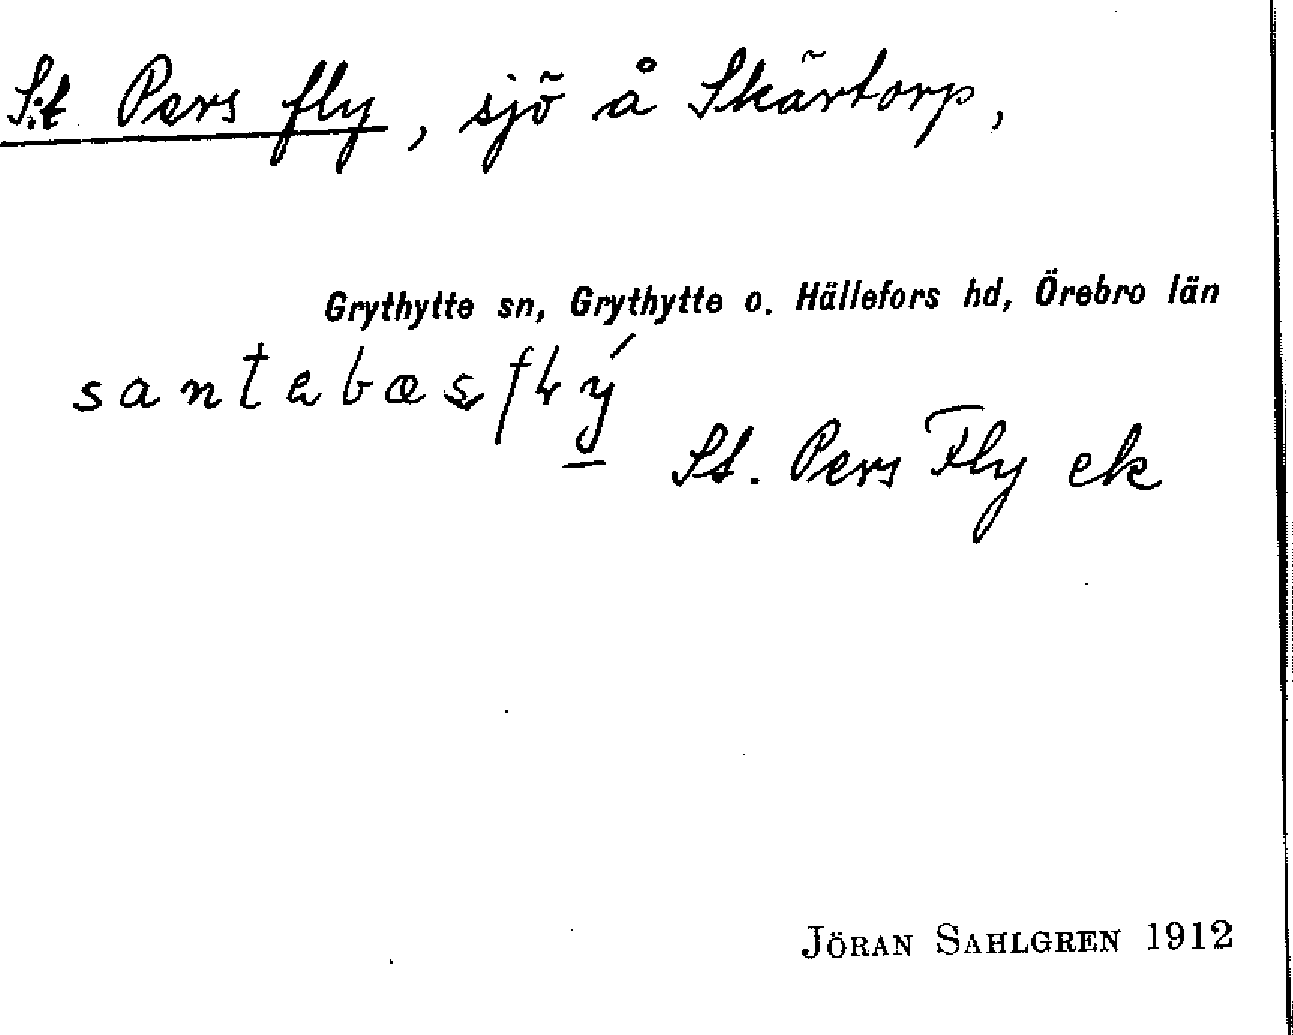 S:t Pers fly, sjö å Skärtorp,
Grythytte sn, Grythytte o. Hällefors hd, Örebro län
St. Pers Fly ek
JÖRAN SAHLGREN 1912